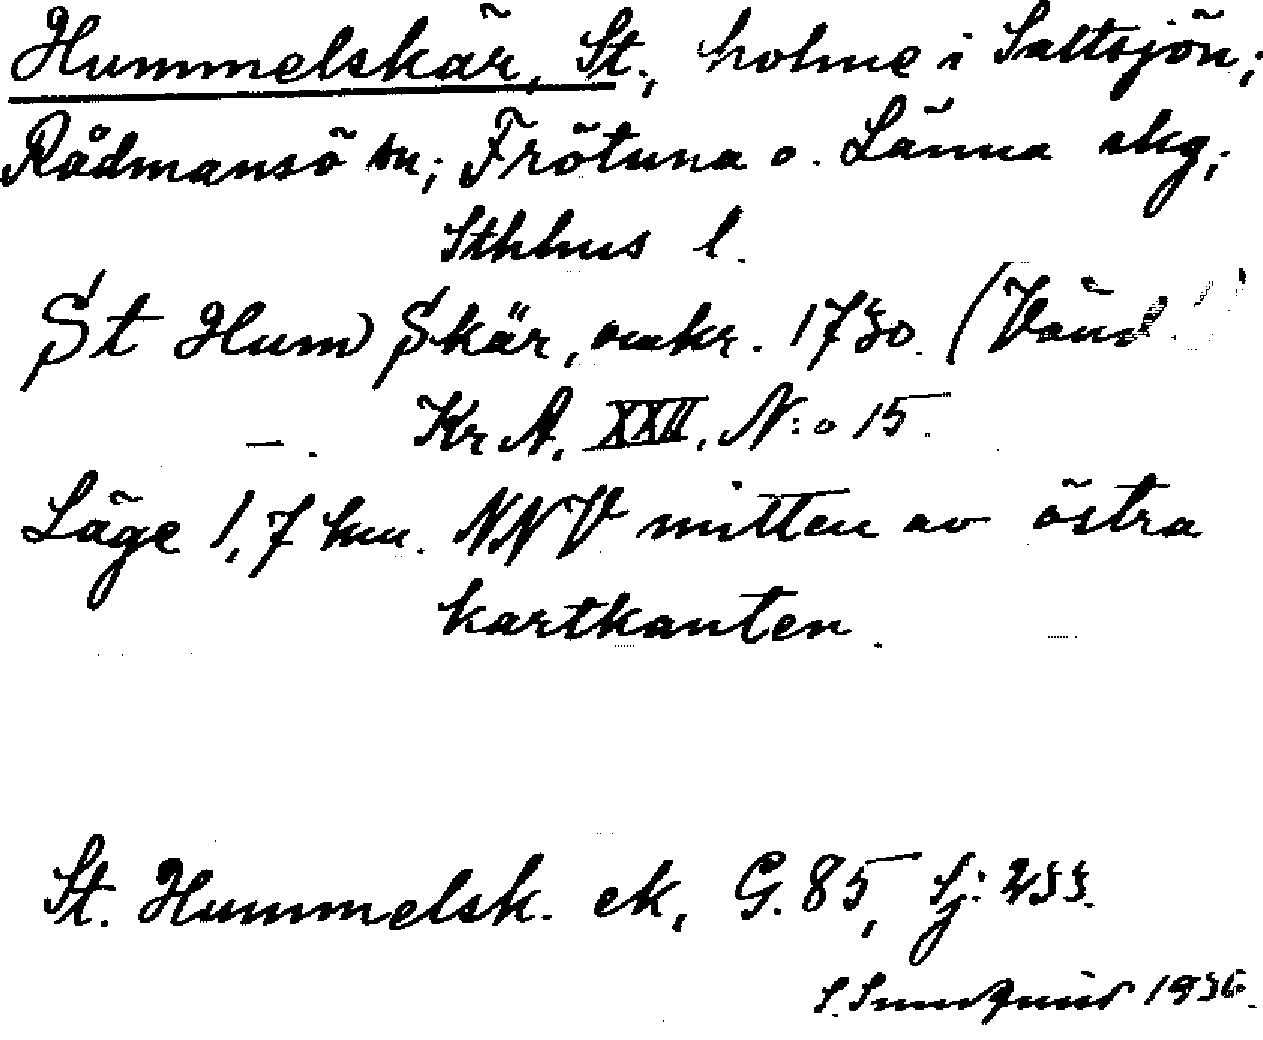 Hummelskär, St., holme i Saltsjön;
Rådmansö sn; Frötuna o. Länna skg,
Sthhus l.
St Hum Skär, omkr. 1730. (Vänd!)
—. Kr A. XXII. N:o 15.
Läge 1,7 km. NNV mitten av östra
kartkanten.
St. Hummelsk. ek, G. 85, Sj: 233.
S. 1936.